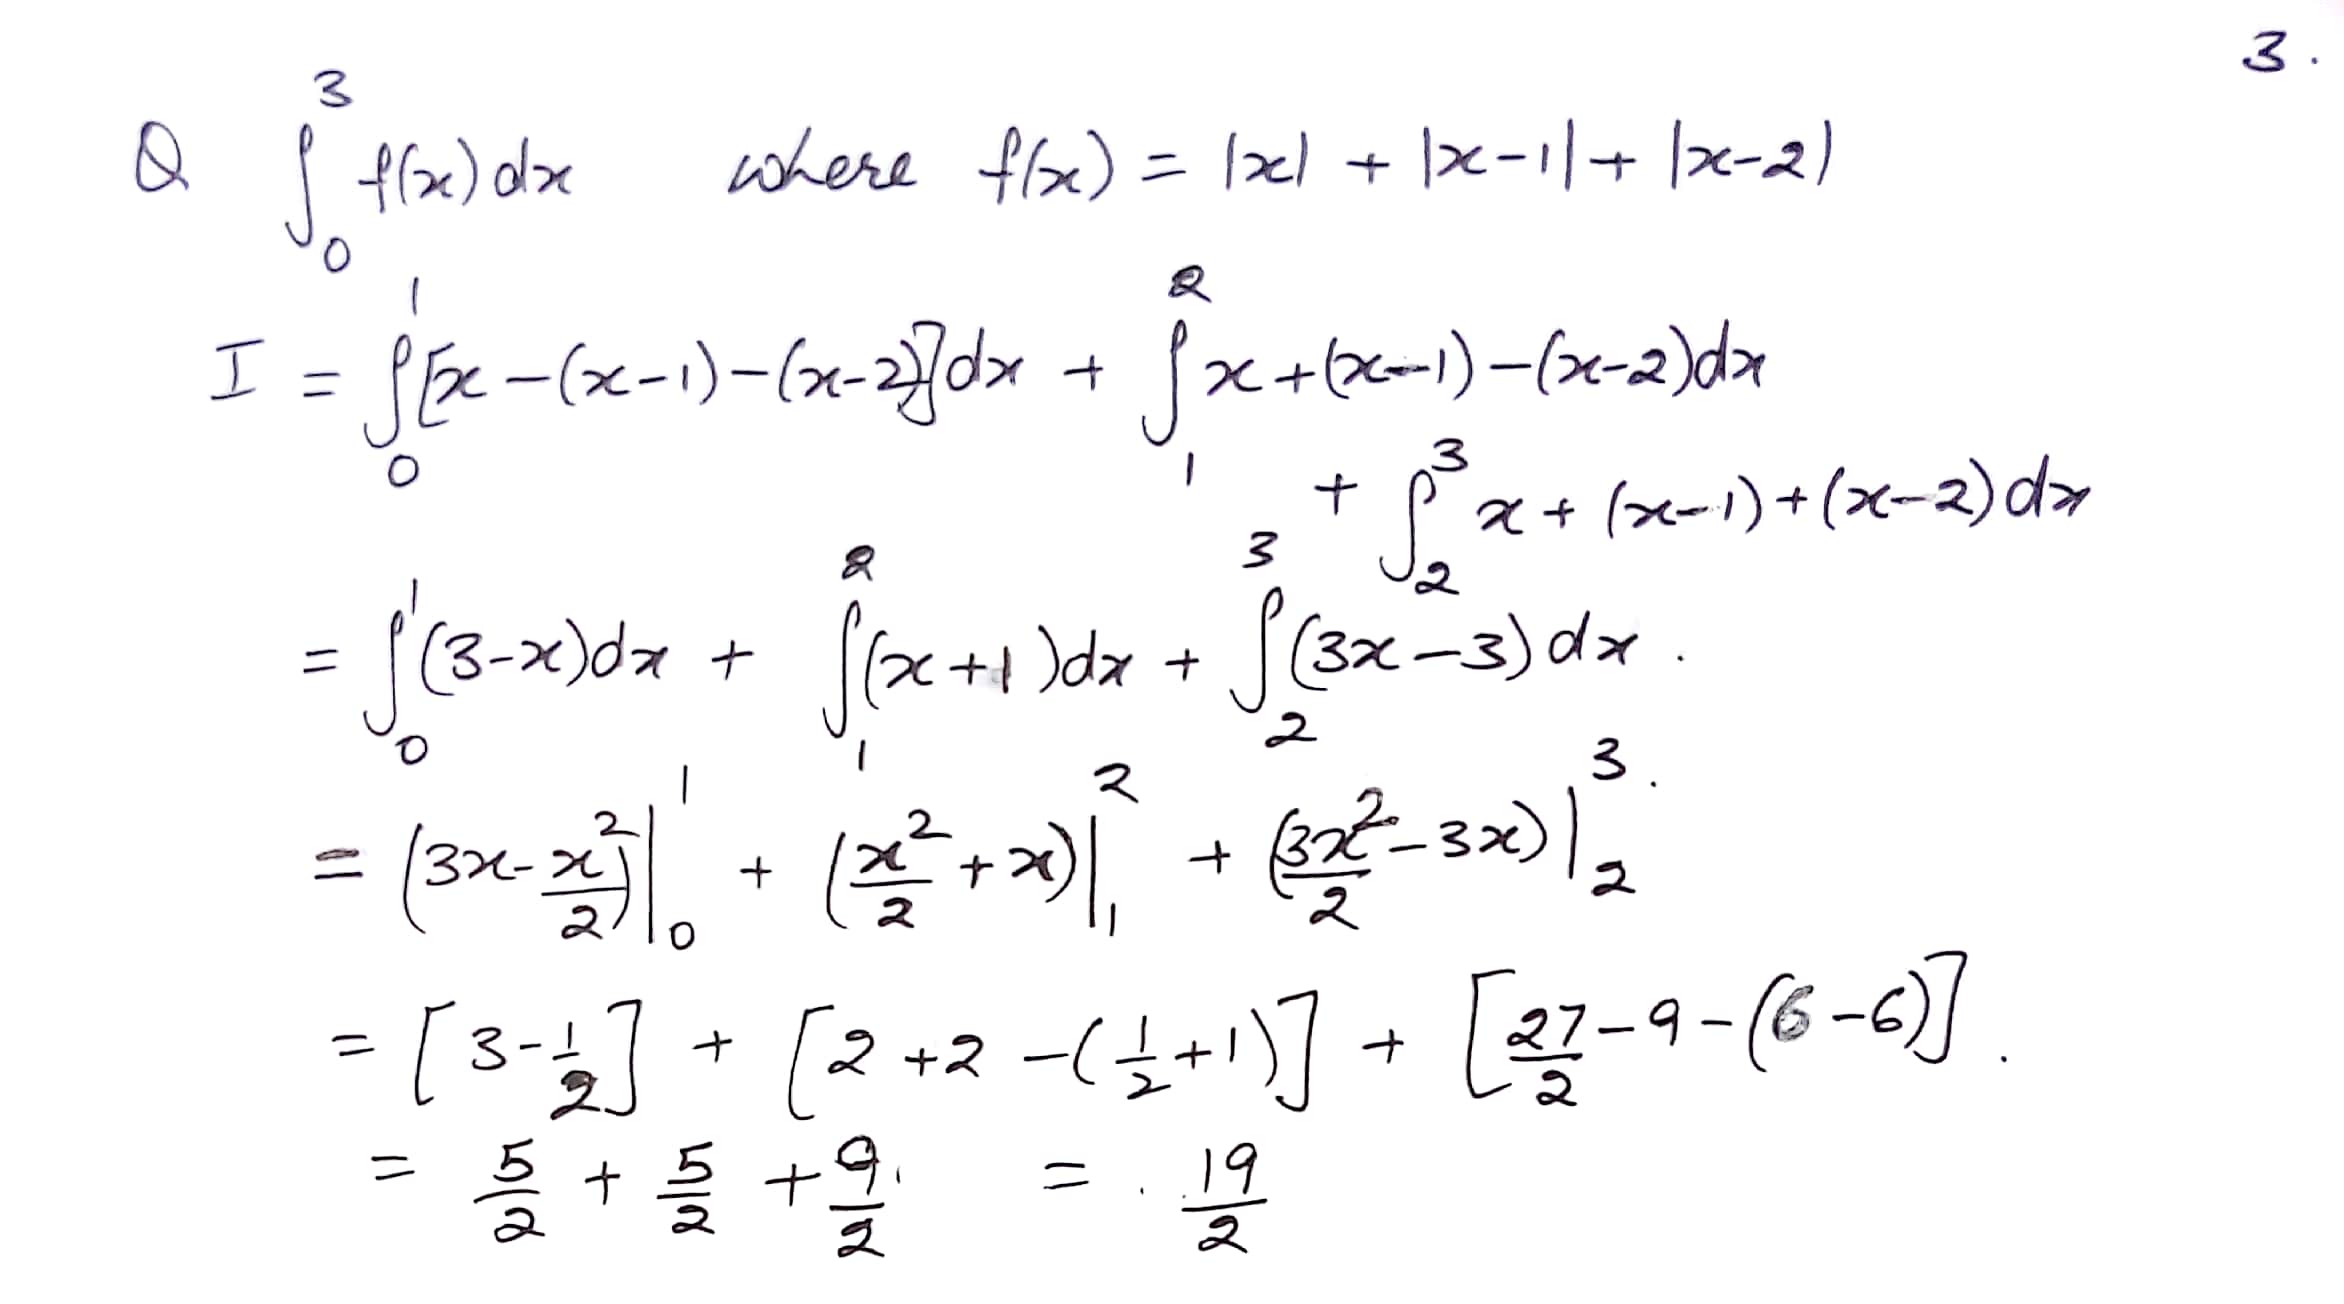 3.
Q ∫₀³ f(x) dx where f(x) = |x| + |x-1| + |x-2|
I = ∫₀¹ [x -(x-1) -(x-2)] dx + ∫₁² x + (x-1) -(x-2) dx
+ ∫₂³ x + (x-1) + (x-2) dx
= ∫₀¹ (3-x) dx + ∫₁² (x+1) dx + ∫₂³ (3x-3) dx .
= (3x - x²/2)|₀¹ + (x²/2 + x)|₁² + (3x²/2 - 3x)|₂³ .
= [3 - 1/2] + [2+2 -(1/2+1)] + [27/2 - 9 - (6-6)] .
= 5/2 + 5/2 + 9/2 = 19/2